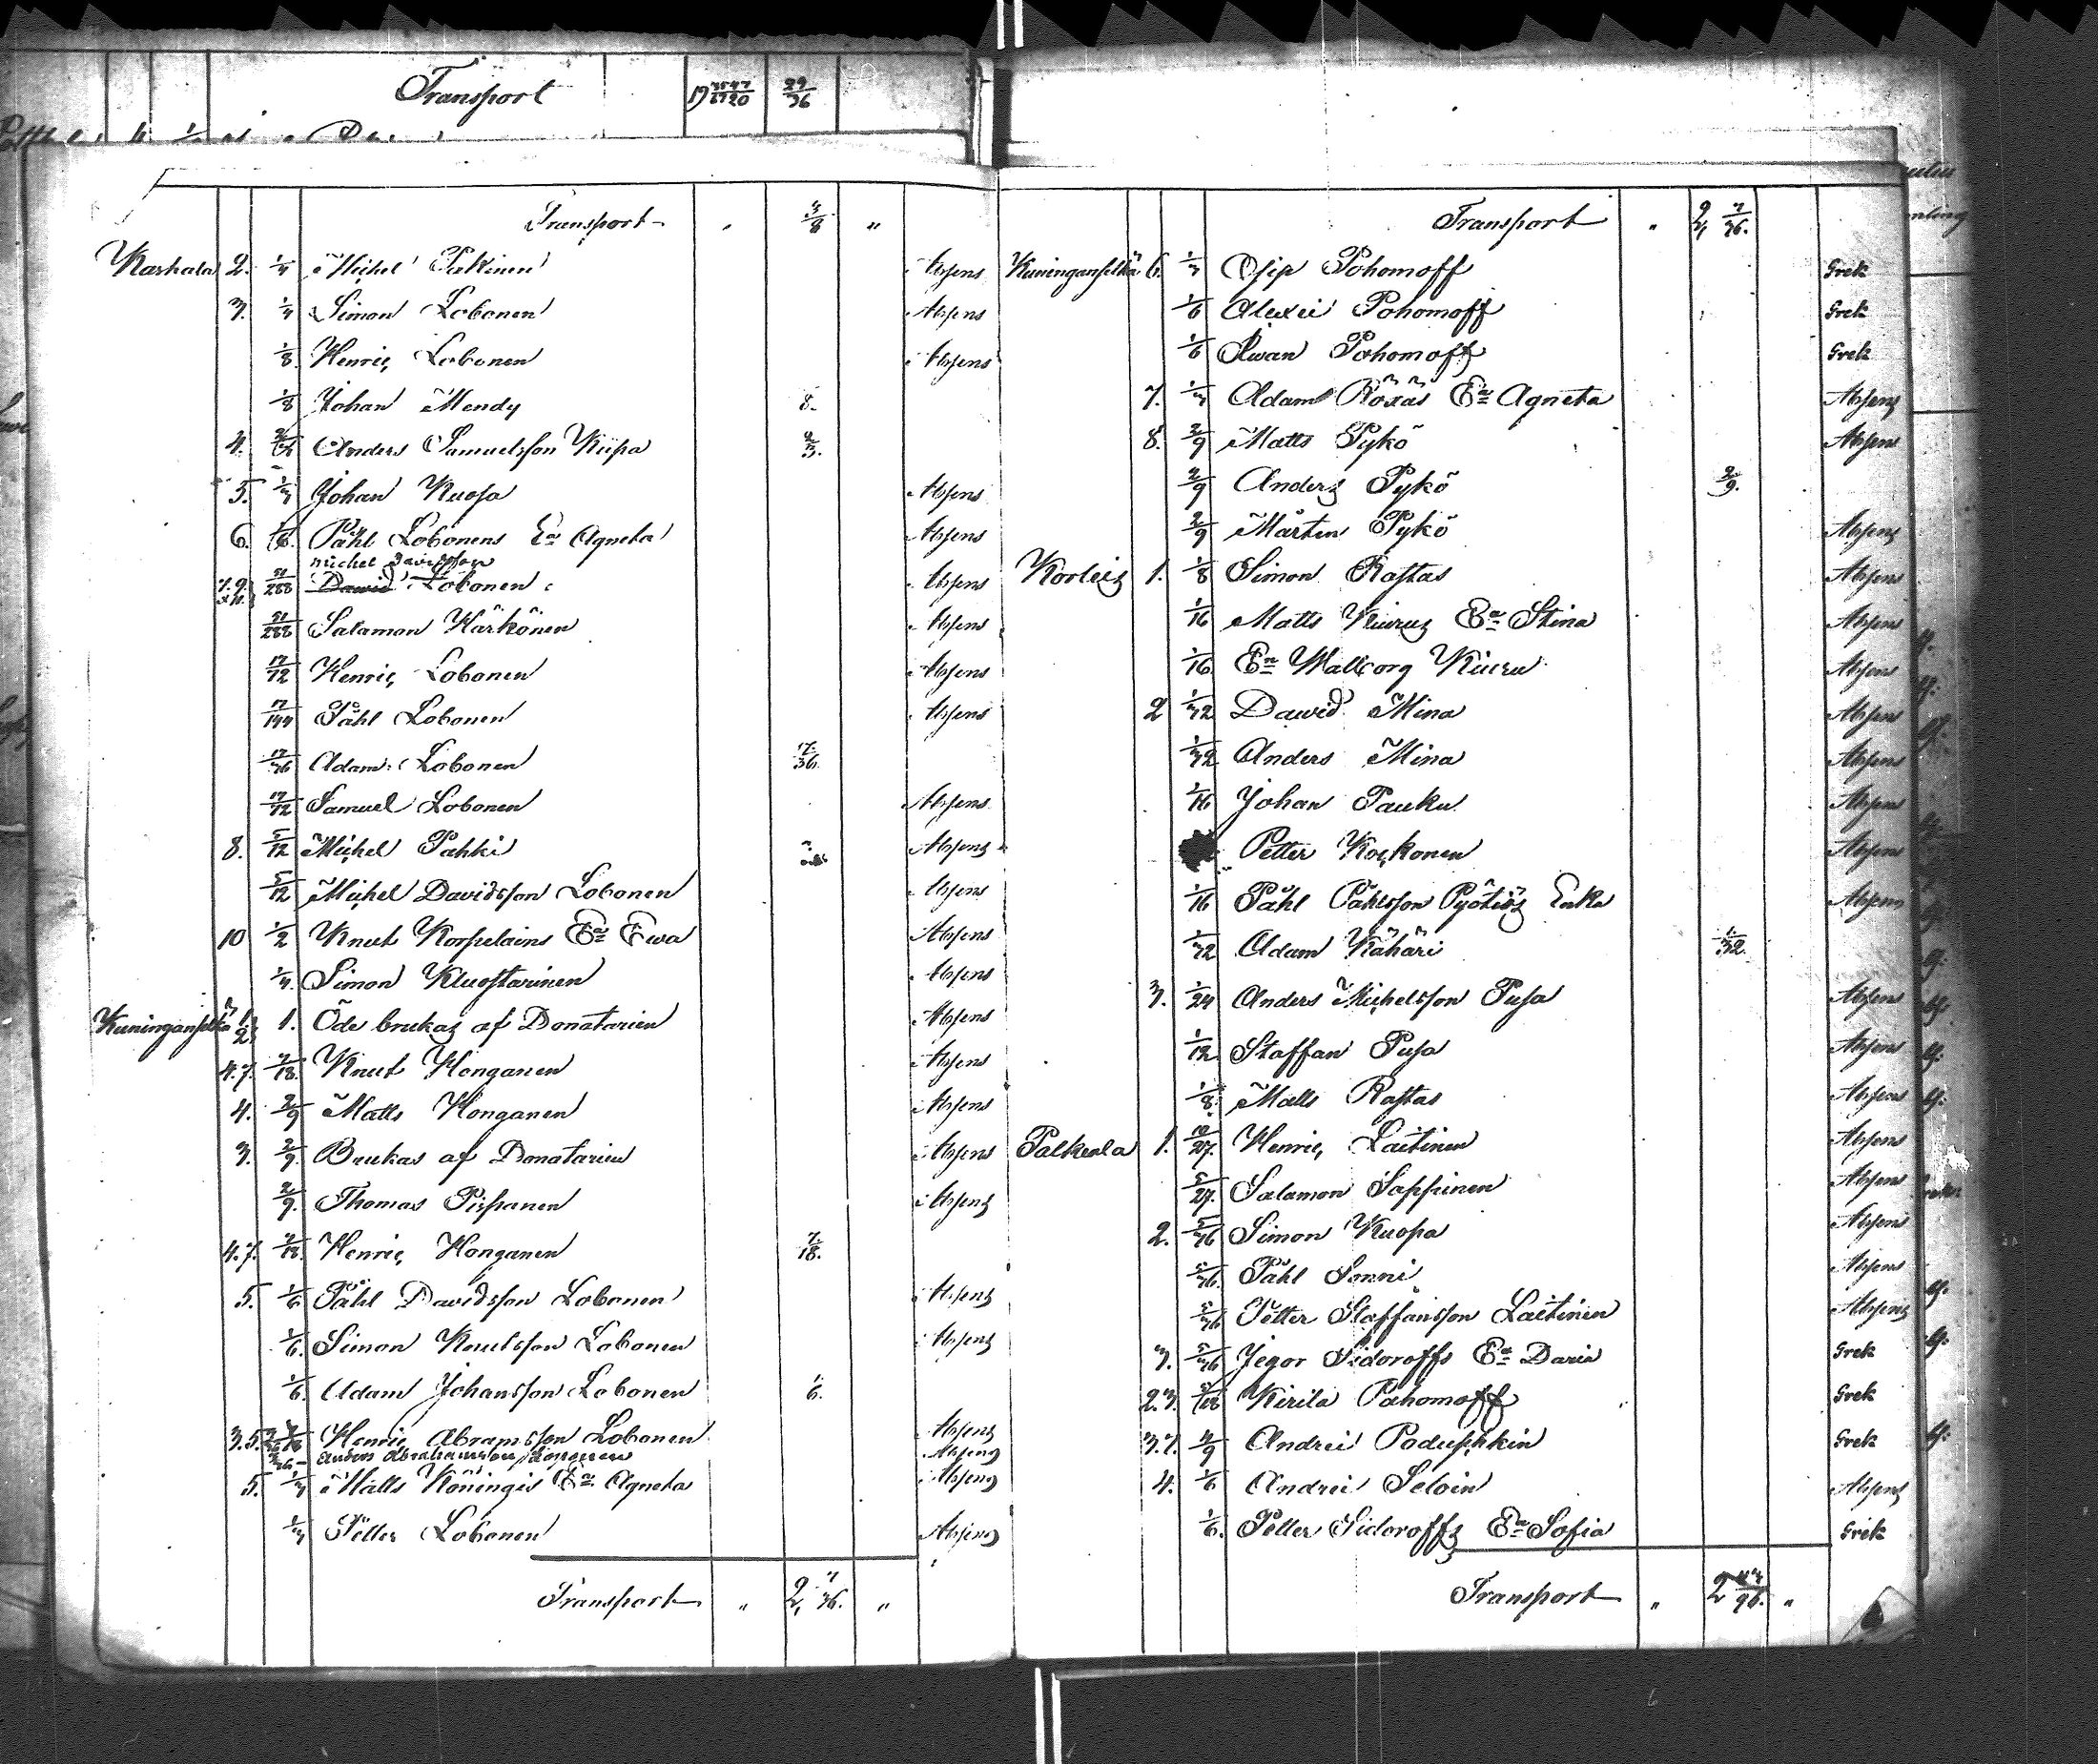 Transport
Transport " 3/8 "
Karhala 2. 1/4 Michel Pakinen Absens
3. 1/4 Simon Lobonen Absens
1/8 Henric Lobonen Absens
1/8 Johan Mendy 8.
4. Anders Samuelsson Kiipa 2/3.
5. 1/4 Johan Kuosa Absens
6. 1/6 Påhl Lobonens Ea Agneta Absens
Michel Davidsson
7.9. David Lobonen Absens
Salamon Härkönen Absens
17/72 Henric Lobonen Absens
17/144 Påhl Lobonen Absens
17/36 Adam Lobonen 17/36.
17/72 Samuel Lobonen Absens
8. 5/12 Michel Pahki Absens
5/12 Michel Davidsson Lobonen Absens
10 1/2 Knut Korpelains Ea Ewa Absens
1/4. Simon Kluostarinen Absens
Kuninganselkä 1. 2. 1. Öde brukas af Donatarien Absens
4.7. 7/18. Knut Honganen Absens
4. 2/9 Matts Honganen Absens
3. 2/9. Brukas af Donatarien Absens
2/9. Thomas Pispanen Absens
4.7. 7/18. Henric Honganen 7/18.
5. 1/6 Påhl Davidsson Lobonen Absens
1/6. Simon Knutsson Lobonen Absens
1/6. Adam Johansson Lobonen 1/6.
3.5. Henric Abramsson Lobonen Absens
Anders Abrahamsson Loponen Absens
5. 1/3 Matts Köningis Ea Agneta Absens
1/3 Petter Lobonen Absens
Transport " 2, 7/36. "
Transport " 2, 7/36.
Kuninganselkä 6. 1/3 Osip Pohomoff Grek
1/6 Alexei Pohomoff Grek
1/6 Iwan Pohomoff Grek
7. 1/3 Adam Röxäs Ea Agneta Absens
8. 2/9 Matts Pykö Absens
2/9 Anders Pykö 2/9.
2/9 Mårten Pykö Absens
Korleis 1. 1/8 Simon Rastas Absens
1/16 Matts Kiurus Ea Stina Absens
1/16 En Wallborg Kiuru Absens
2 1/32 David Mina Absens
1/32 Anders Mina Absens
1/16 Johan Pauku Absens
Petter Kockonen Absens
1/16 Påhl Påhlsson Pyötiös Enka Absens
1/32 Adam Kähäri 1/32.
3. 1/24 Anders Michelsson Pusa Absens
1/12 Staffan Pusa Absens
1/8 Matts Rastas Absens
Palkeala 1. 10/27. Henric Laitinen Absens
5/27. Salamon Sappinen Absens
2. 5/36 Simon Kuosa Absens
5/36. Påhl Sonni Absens
5/36 Petter Staffansson Laitinen Absens
3. 5/36 Jegor Sidoroffs Ea Daria Grek
2.3. 5/18 Kirila Pahomoff Grek
3.7. 4/9 Andrei Poduschkin Grek
4. 1/6 Andrei Seloin Absens
1/6. Petter Sidoroffs Ea Sofia Grek
Transport " 2 "